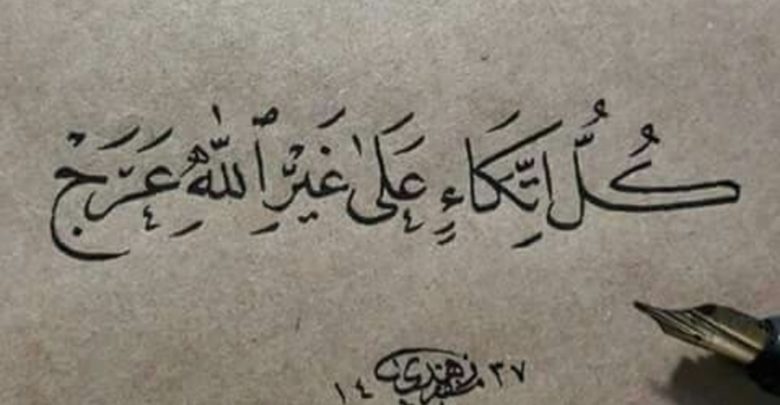 كُلُّ اتِّكَاءٍ عَلىٰ غَيْرِ ٱللّٰهِ عَرَجْ
١٤٣٧